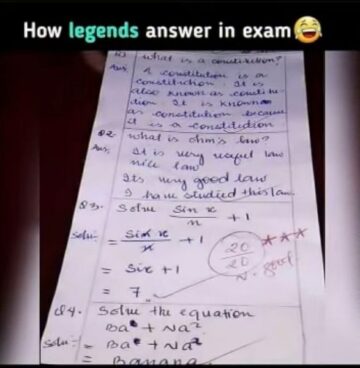 How legends answer in exam😂
Q1. what is a constitution?
Ans, A constitution is a
constitution. It is
also known as constitu
tion. It is known
as constitution because
it is a constitution
Q2. what is ohm's law?
Ans, It is very useful law
nice law
Its very good law
I have studied this law
Q3. Solve sin x / n + 1
Solu:- = sin x / n + 1
= Six + 1
= 7
20/20
V. good
Q4. Solve the equation
Ba + Na²
Solu:- = Ba + Na²
= Banana